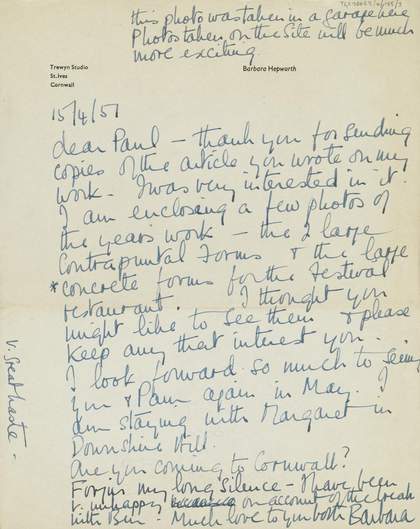 this photo was taken in a garage here
Photos taken on the site will be much
more exciting
Trewyn Studio
St. Ives
Cornwall
Barbara Hepworth
15/4/51
dear Paul — thank you for sending
copies of the article you wrote on my
work. I was very interested in it.
I am enclosing a few photos of
the years work — the 2 large
Contrapuntal Forms & the large
*concrete forms for the Festival
restaurant. I thought you
might like to see them & please
keep any that interest you.
I look forward so much to seeing
you & again in May. I
am staying with Margaret in
Downshire Hill.
Are you coming to Cornwall?
Forgive my long silence — I have been
v. unhappy on account of the break
with Ben — Much love to you both Barbara
V. Great haste —